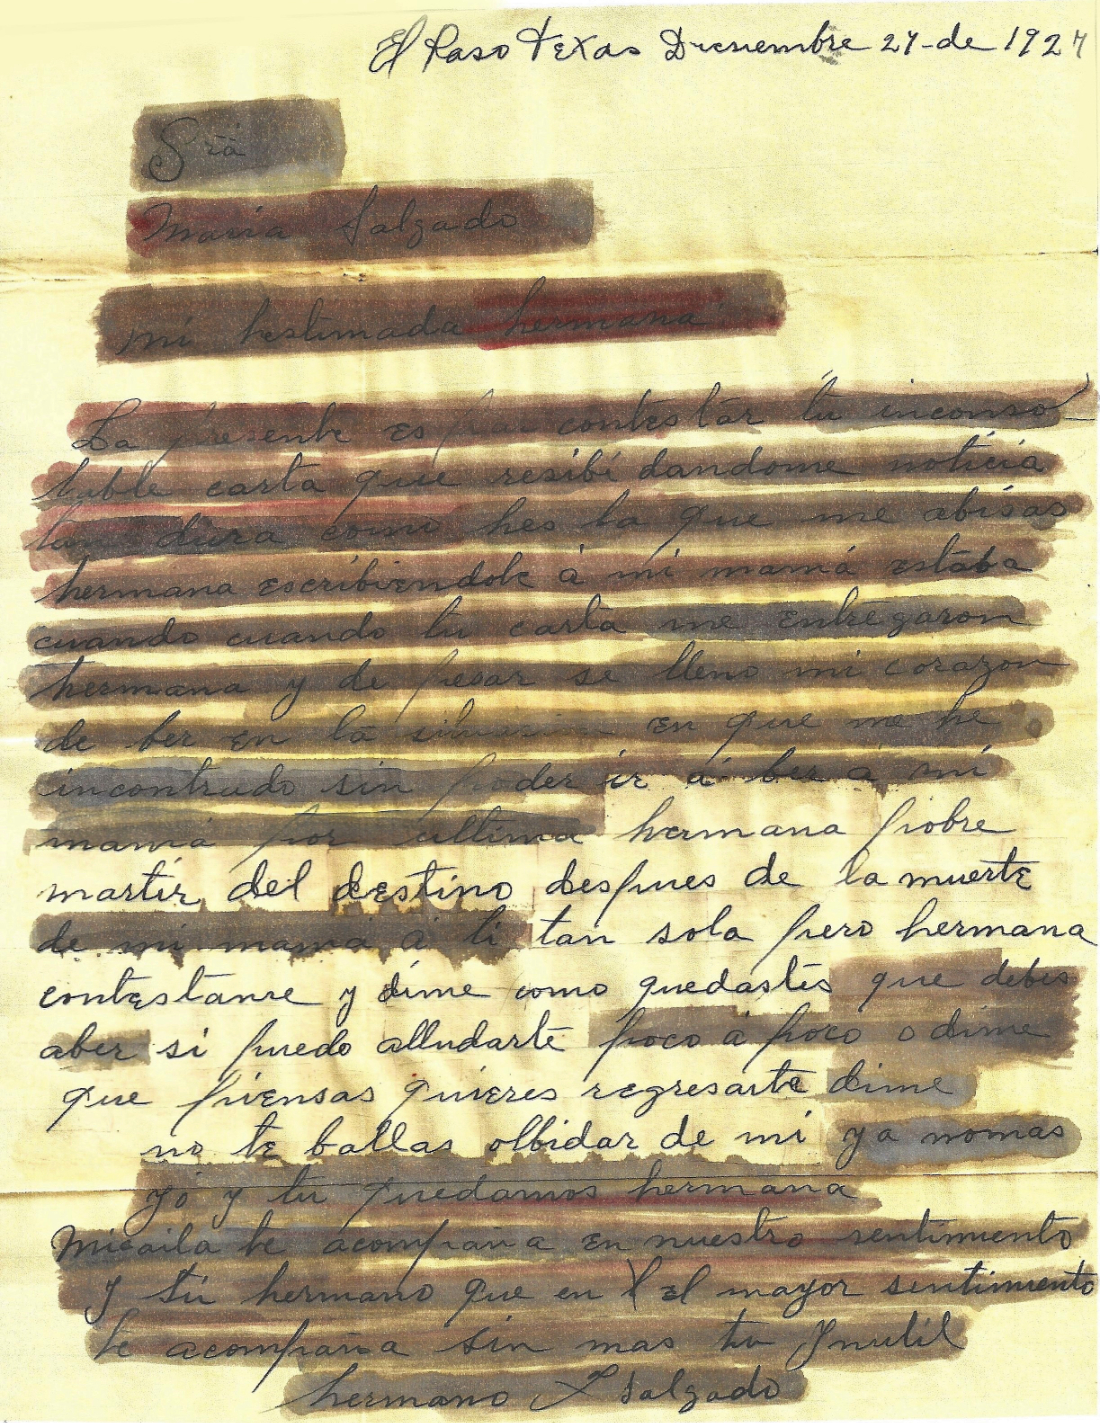 El Paso Texas Diciembre 27-de 1927
Srä
Maria Salgado
mi hestimada hermana
La presente es par contestar tu inconso
lable carta que resibí dandome noticia
tan dura como hes la que me abisas
hermana escribiendole á mi mamá estaba
cuando cuando tu carta me entregaron
hermana y de pesar se lleno mi corazon
de ber en la en que me he
incontrado sin poder ir á ber a mi
mamá por ultima hermana pobre
martir del destino despues de la muerte
de mi mama a ti tan sola pero hermana
contestame y dime como quedastes que debes
aber si puedo alludarte poco á poco o dime
que piensas quieres regresarte dime
no te ballas olbidar de mi ya nomas
yó y tu quedamos hermana
Micaila te acompaña en nuestro sentimiento
y tu hermano que en el mayor sentimiento
te acompaña sin mas tu Ynutil
hermano Salgado